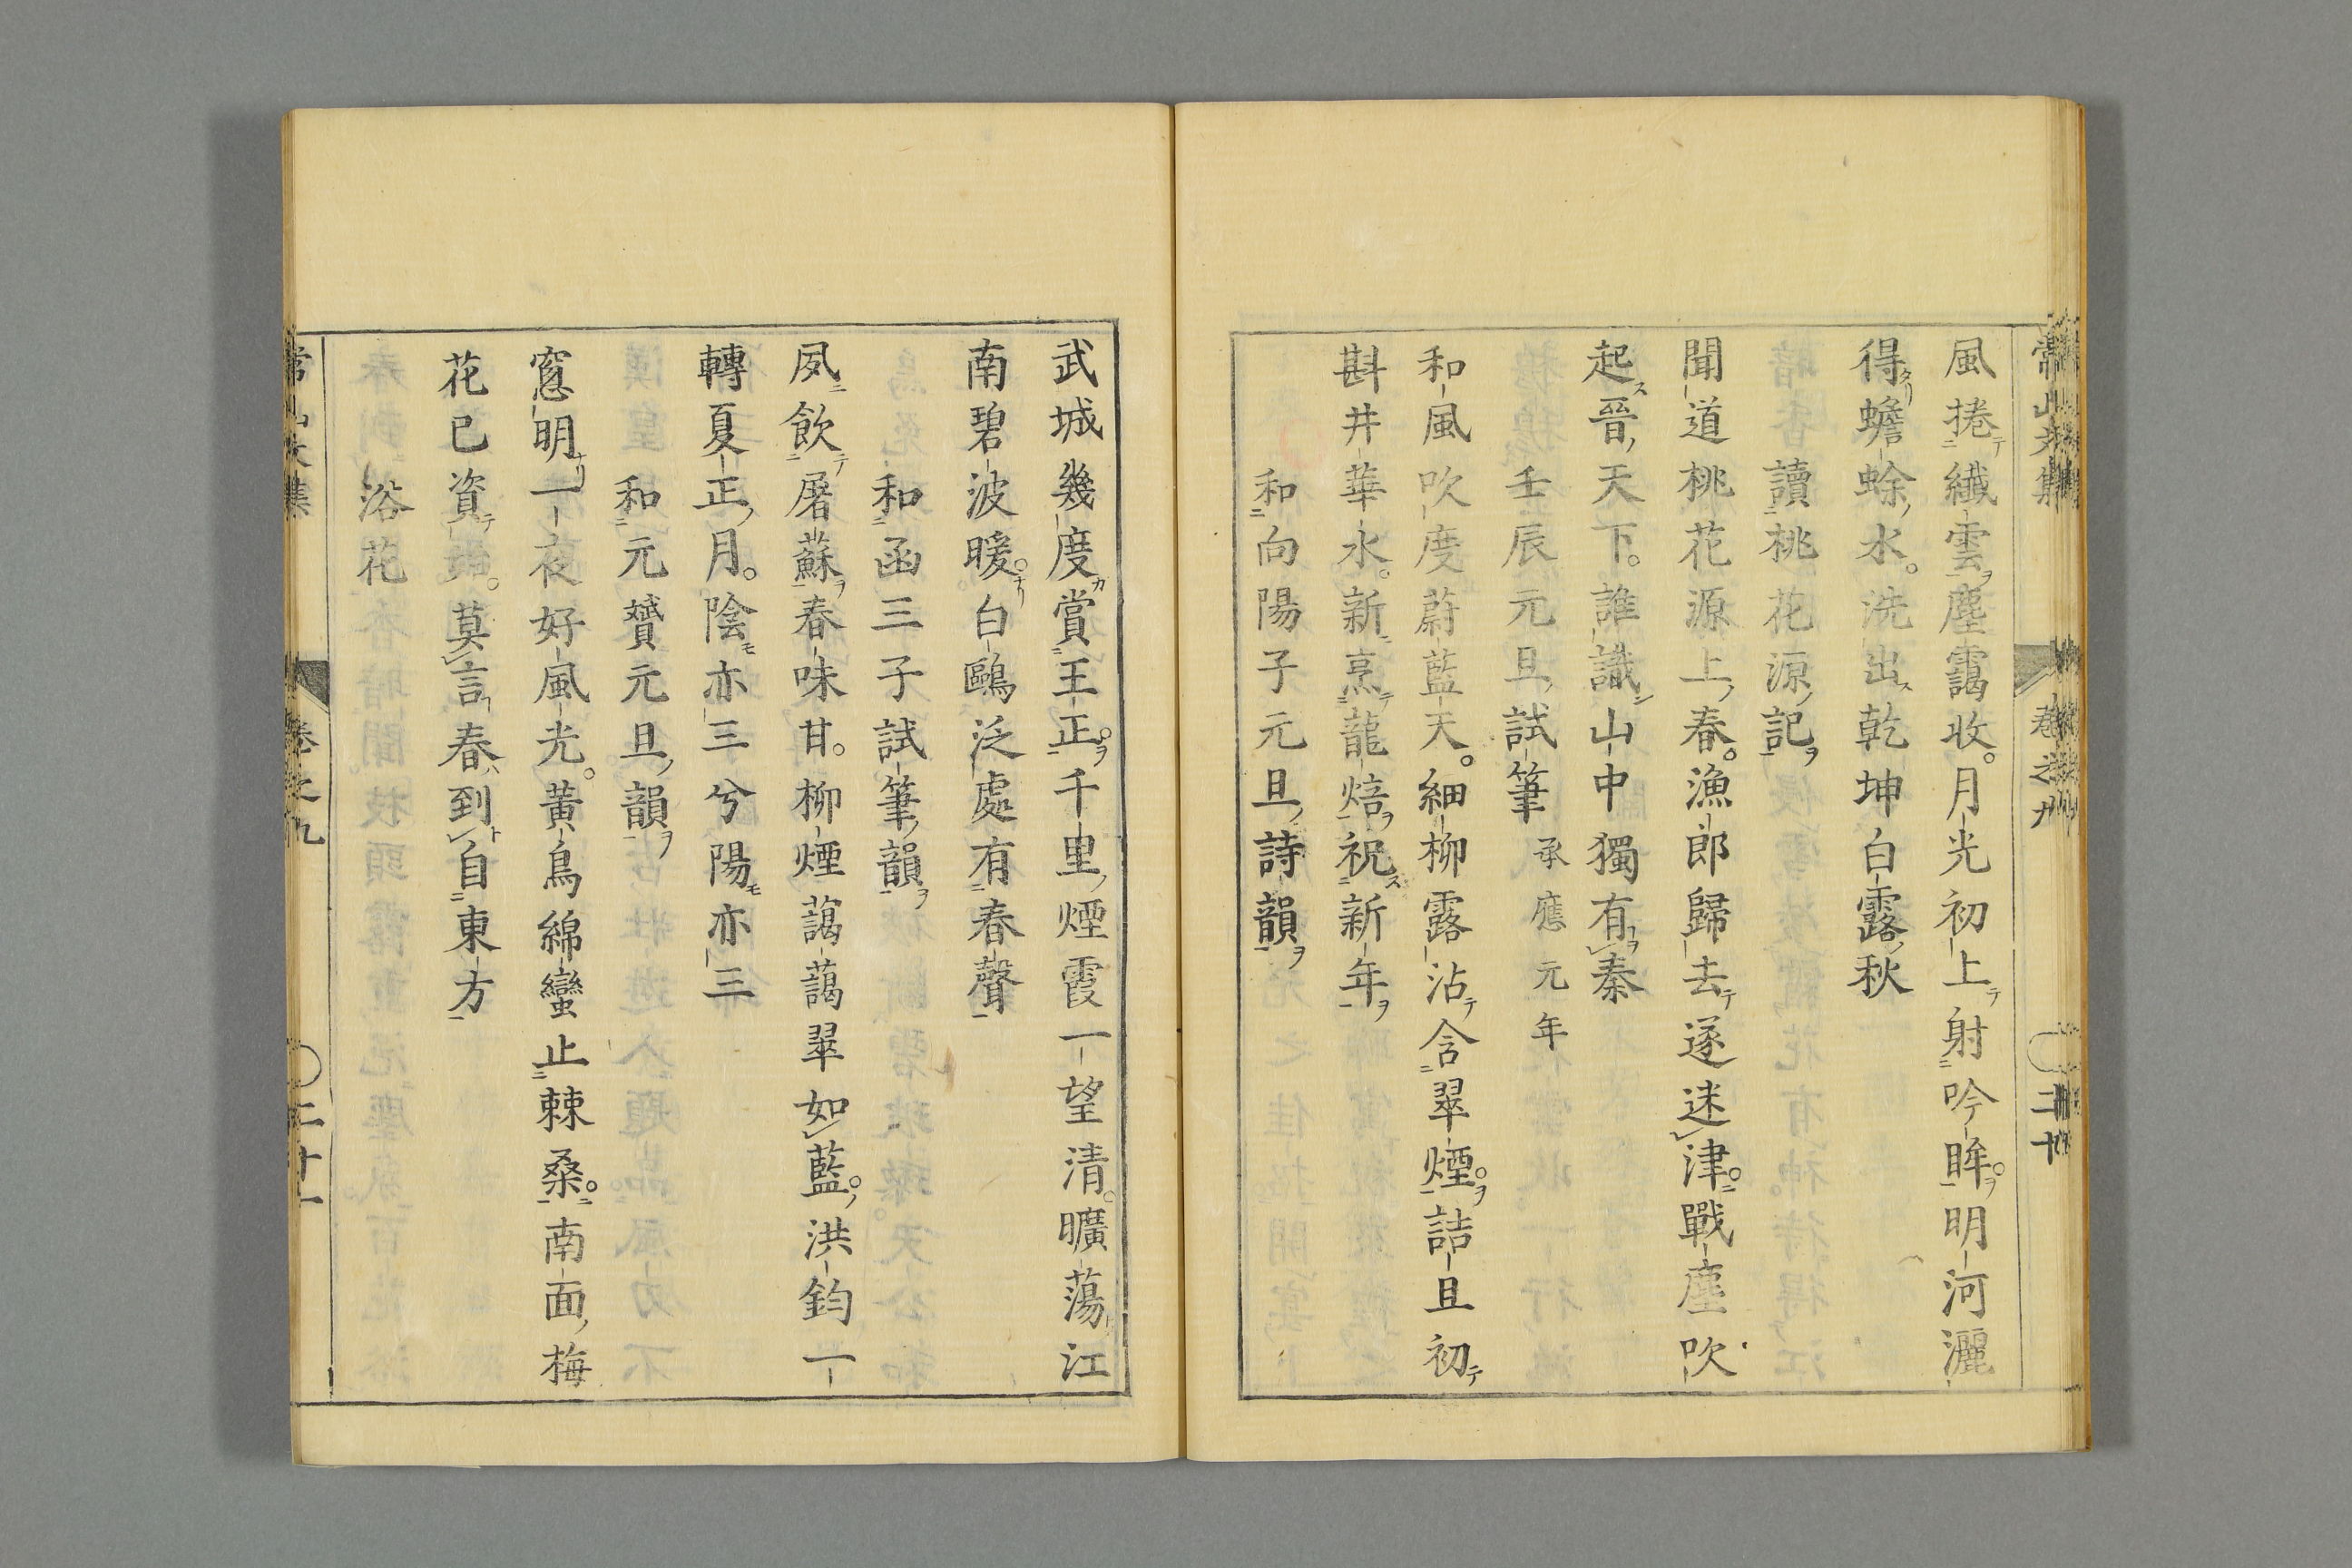 風捲繊雲塵靄收月光初上射吟眸明河灑
得蟾蜍水洗出乾坤白露秋
讀桃花源記
聞道桃花源上春漁郎歸去遂迷津戰塵吹
起晉天下誰識山中獨有秦
壬辰元旦試筆 承應元年
和風吹度蔚藍天細柳露沾含翠煙詰旦初
斟井華水新烹龍焙祝新年
和向陽子元旦詩韻
武城幾度賞王正千里煙霞一望清曠蕩江
南碧波暖白鷗泛處有春聲
和函三子試筆韻
夙飲屠蘇春味甘柳煙藹藹翠如藍洪鈞一
轉夏正月陰亦三兮陽亦三
和元贇元旦韻
窓明一夜好風光黃鳥綿蠻止棘桑南面梅
花已資莫言春到自東方
浴花
常山文集 卷之九 二十
常山文集 卷之九 二十一